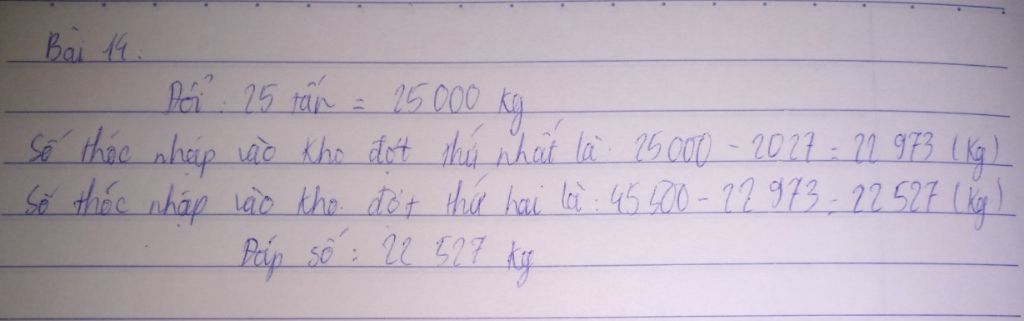 Bài 14:
Đổi: 25 tấn = 25 000 kg
Số thóc nhập vào kho đợt thứ nhất là: 25000 - 2027 = 22 973 (kg)
Số thóc nhập vào kho đợt thứ hai là: 45500 - 22 973 = 22 527 (kg)
Đáp số: 22 527 kg